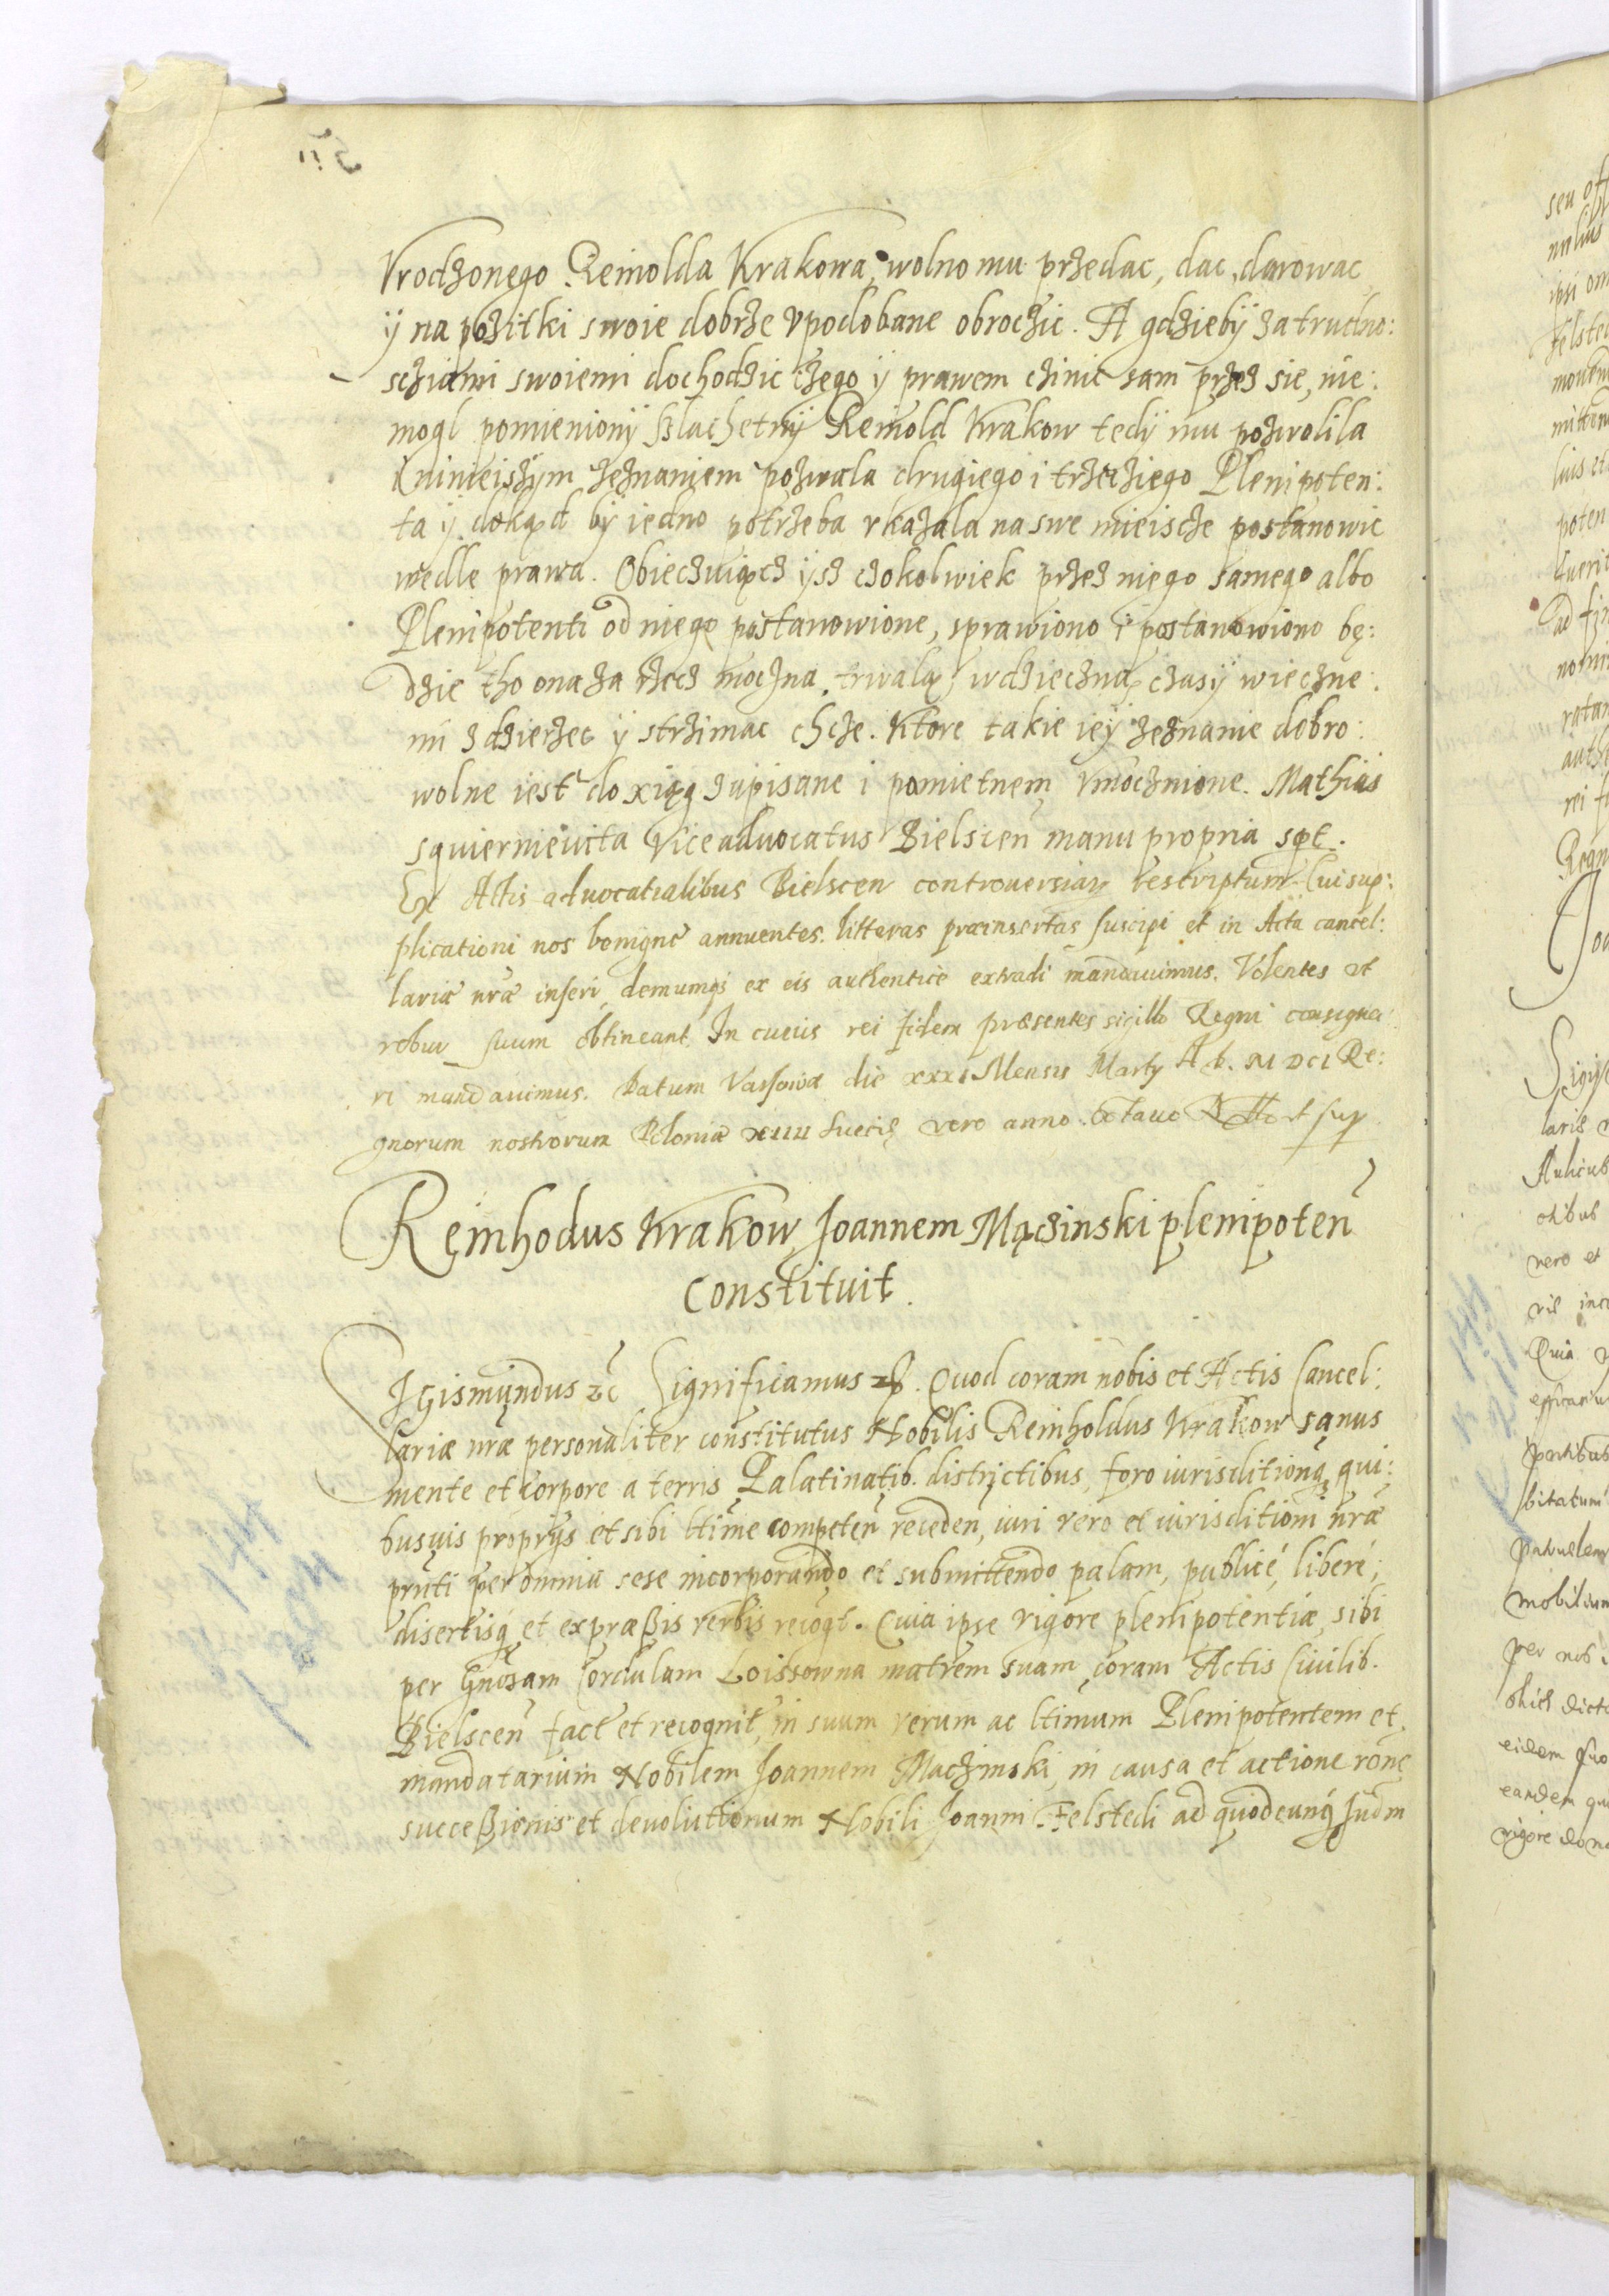 Vrodzonego Reinolda Krakowa, wolno mu przedac, dac, darowac
ÿ na pozitki swoie dobrze vpodobane obroczic. A gdziebÿ za trudno:
scziami swoiemi dochodzic czego ÿ prawem czinic sam przez sie, nie:
mogl pomienionÿ Szlachetnÿ Reinold Krakow tedÿ mu pozwolila
ninieiszÿm zeznaniem pozwala drugiego i trzecziego Plenipoten:
ta ÿ dokąd bÿ iedno potrzeba vkazala na swe mieiscze postanowic
wedle prawa. Obieczuiącz ÿsz czokolwiek przez niego samego albo
Plenipotenti od niego postanowione, sprawiono i postanowiono bę:
dzie tho ona za rzecz moczna, trwalą, wdzieczną czasÿ wieczne:
mi zdzierzec ÿ strzimac chcze. Ktore takie ieÿ zeznanie dobro:
wolne iest do xiąg zapisane i pamietnem vmocznione. Mathias
squiernieuita Viceaduocatus Bielscen manu propria spt.
Ex Actis aduocatialibus Bielscen controuersiar rescriptum. Cui sup:
plicationi nos benigne annuentes. litteras præinsertas suscipi et in Acta cancel:
lariæ nræ inseri, demumq ex eis authentice extradi mandauimus. Volentes vt
robur suum obtineant. In cuius rei fidem præsentes sigillo Regni consigna:
ri mandauimus. Datum Varsouiæ die xxxi Mensis Martÿ A. D. MDCI Re:
gnorum nostrorum Poloniæ xiiii Sueciæ vero anno. Octauo
Reinhodus Krakow Joannem Mączinski plenipoten
Constituit.
Sigismundus &c Significamus &. Quod coram nobis et Actis Cancel:
lariæ nræ personaliter constitutus Nobilis Reinholdus Krakow sanus
mente et corpore a terris Palatinatib. districtibus, foro iurisditionq qui:
busuis proprÿs et sibi ltime competen receden, iuri vero et iurisditioni nræ
prnti per omnia sese incorporando et submittendo palam, publicé, liberé,
disertisq et expræßis verbis recogt. Quia ipse vigore plenipotentiæ, sibi
per Gnosam Cordulam Loissowna matrem suam coram Actis Ciuilib.
Bielscen fact et recognit, in suum verum ac ltimum Plenipotentem et
mandatarium Nobilem Joannem Maczinski, in causa et actione rone
succeßionis et deuolutionum Nobili Joanni Felstedi ad quodcunq Judm